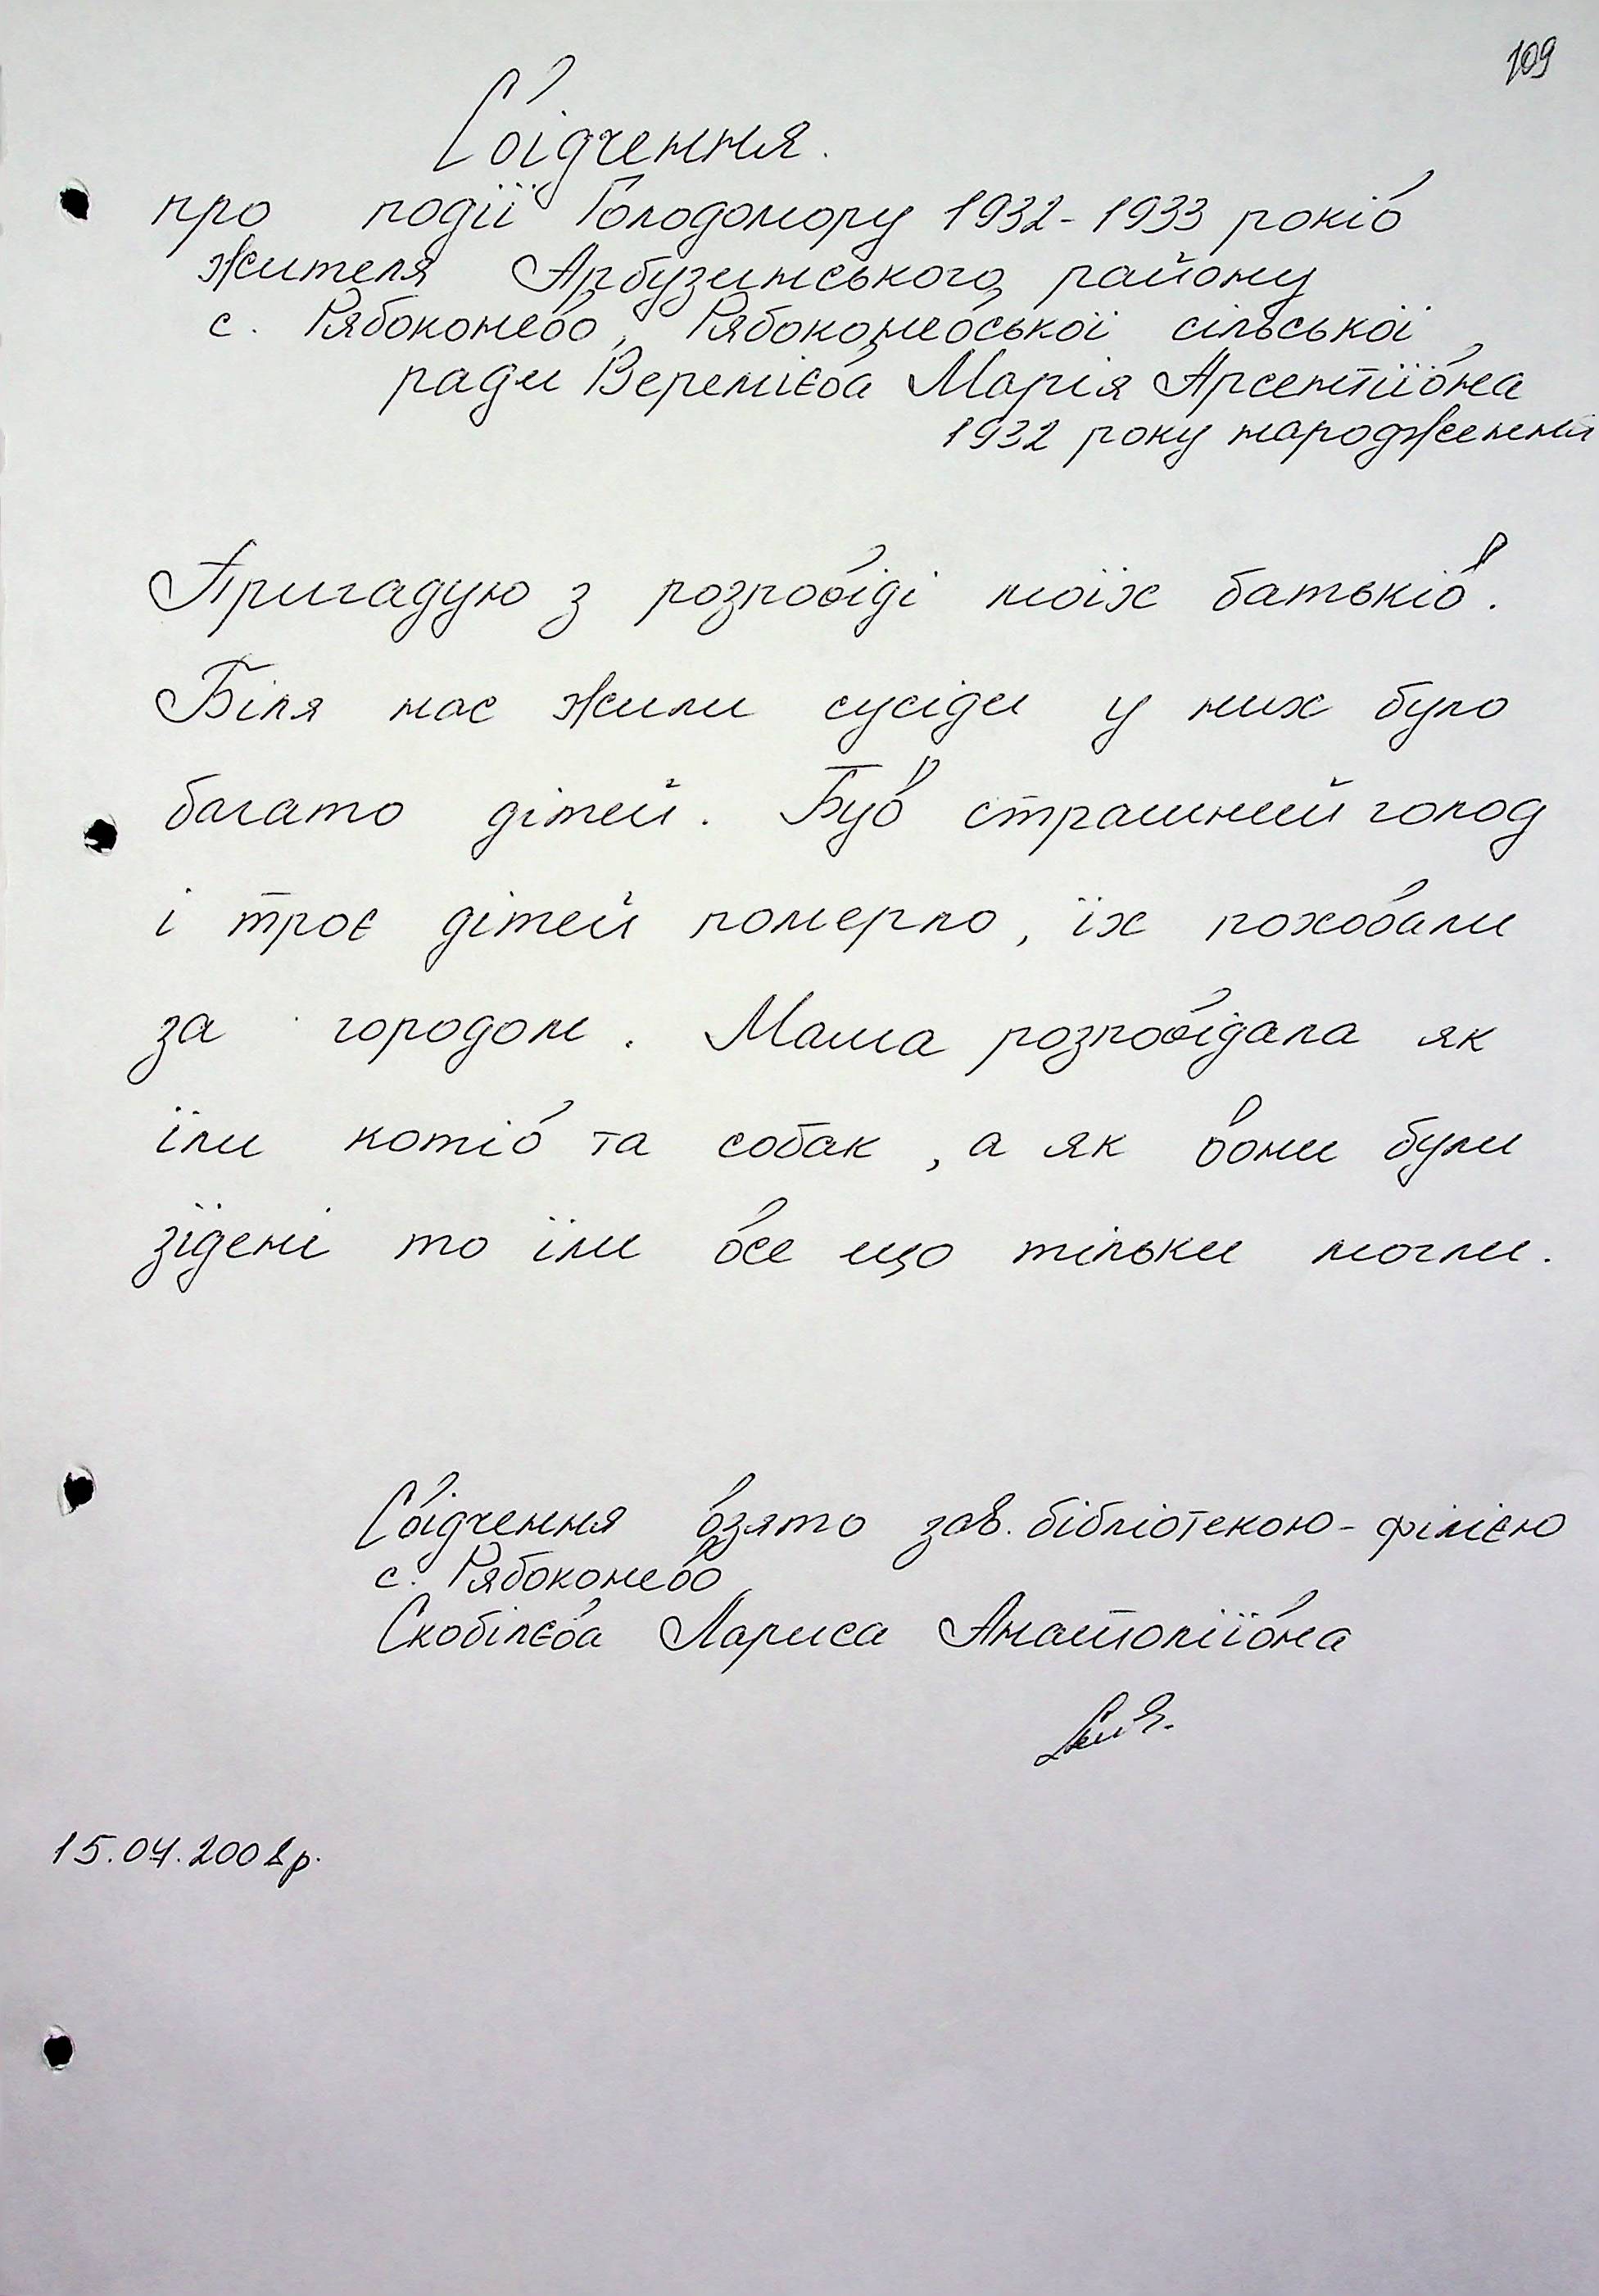 109
Свідчення.
про події Голодомору 1932-1933 років
жителя Арбузинського району
с. Рябоконево, Рябоконевської сільської
ради Веремієва Марія Арсентіївна
1932 року народження
Пригадую з розповіді моїх батьків.
Біля нас жили сусіди у них було
багато дітей. Був страшний голод
і троє дітей померло, їх поховали
за городом. Мама розповідала як
їли котів та собак, а як вони були
зїдені то їли все що тільки могли.
Свідчення взято зав. бібліотекою-філією
с. Рябоконево
Скобілєва Лариса Анатоліївна
15.04.2008р.